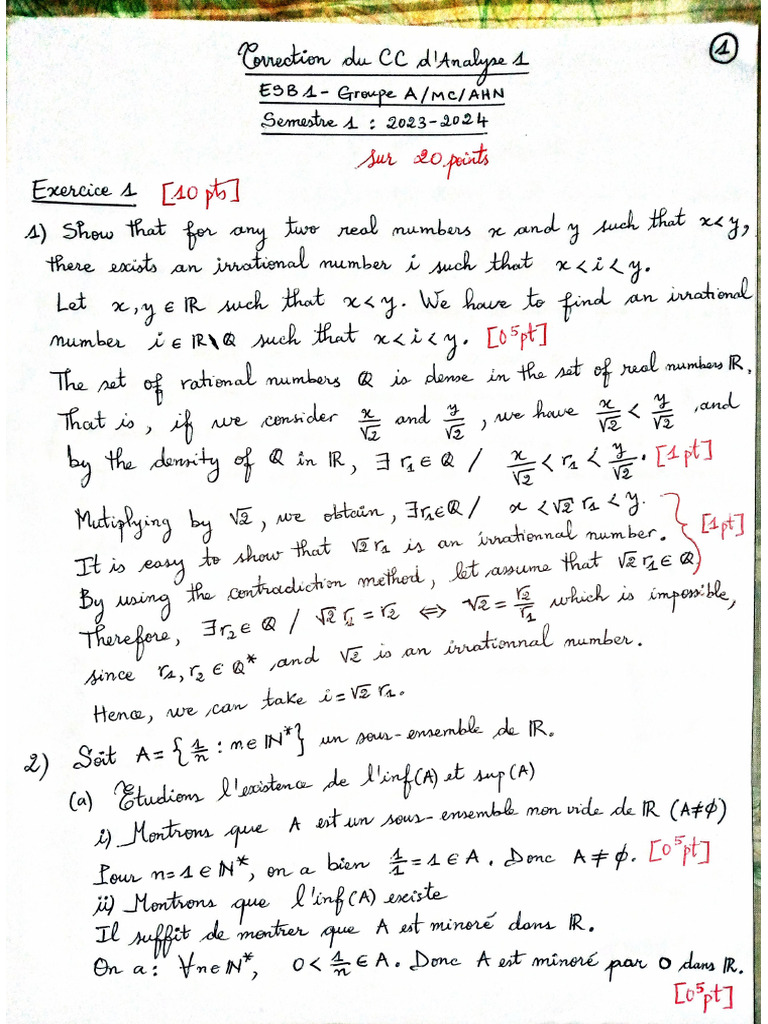 1
Correction du CC d'Analyse 1
ESB1 - Groupe A/MC/AHN
Semestre 1 : 2023-2024
sur 20 points
Exercice 1 [10 pts]
1) Show that for any two real numbers x and y such that x<y,
there exists an irrational number i such that x<i<y.
Let x,y ∈ ℝ such that x<y. We have to find an irrational
number i ∈ ℝ\ℚ such that x<i<y. [0⁵pt]
The set of rational numbers ℚ is dense in the set of real numbers ℝ.
That is, if we consider x/√2 and y/√2, we have x/√2 < y/√2, and
by the density of ℚ in ℝ, ∃ r₁ ∈ ℚ / x/√2 < r₁ < y/√2. [1pt]
Mutiplying by √2, we obtain, ∃r₁∈ℚ / x <√2 r₁ < y.
It is easy to show that √2 r₁ is an irrationnal number. [1pt]
By using the contradiction method, let assume that √2 r₁ ∈ ℚ
Therefore, ∃r₂ ∈ ℚ / √2 r₁ = r₂ ⇔ √2 = r₂/r₁ which is impossible,
since r₁, r₂ ∈ ℚ* and √2 is an irrationnal number.
Hence, we can take i=√2 r₁.
2) Soit A = {1/n : n ∈ ℕ*} un sous-ensemble de ℝ.
(a) Etudions l'existence de l'inf(A) et sup(A)
i) Montrons que A est un sous-ensemble non vide de ℝ (A≠∅)
Pour n=1 ∈ ℕ*, on a bien 1/1 = 1 ∈ A. Donc A ≠ ∅. [0⁵pt]
ii) Montrons que l'inf(A) existe
Il suffit de montrer que A est minoré dans ℝ.
On a : ∀n∈ℕ*, 0 < 1/n ∈ A. Donc A est minoré par 0 dans ℝ.
[0⁵pt]